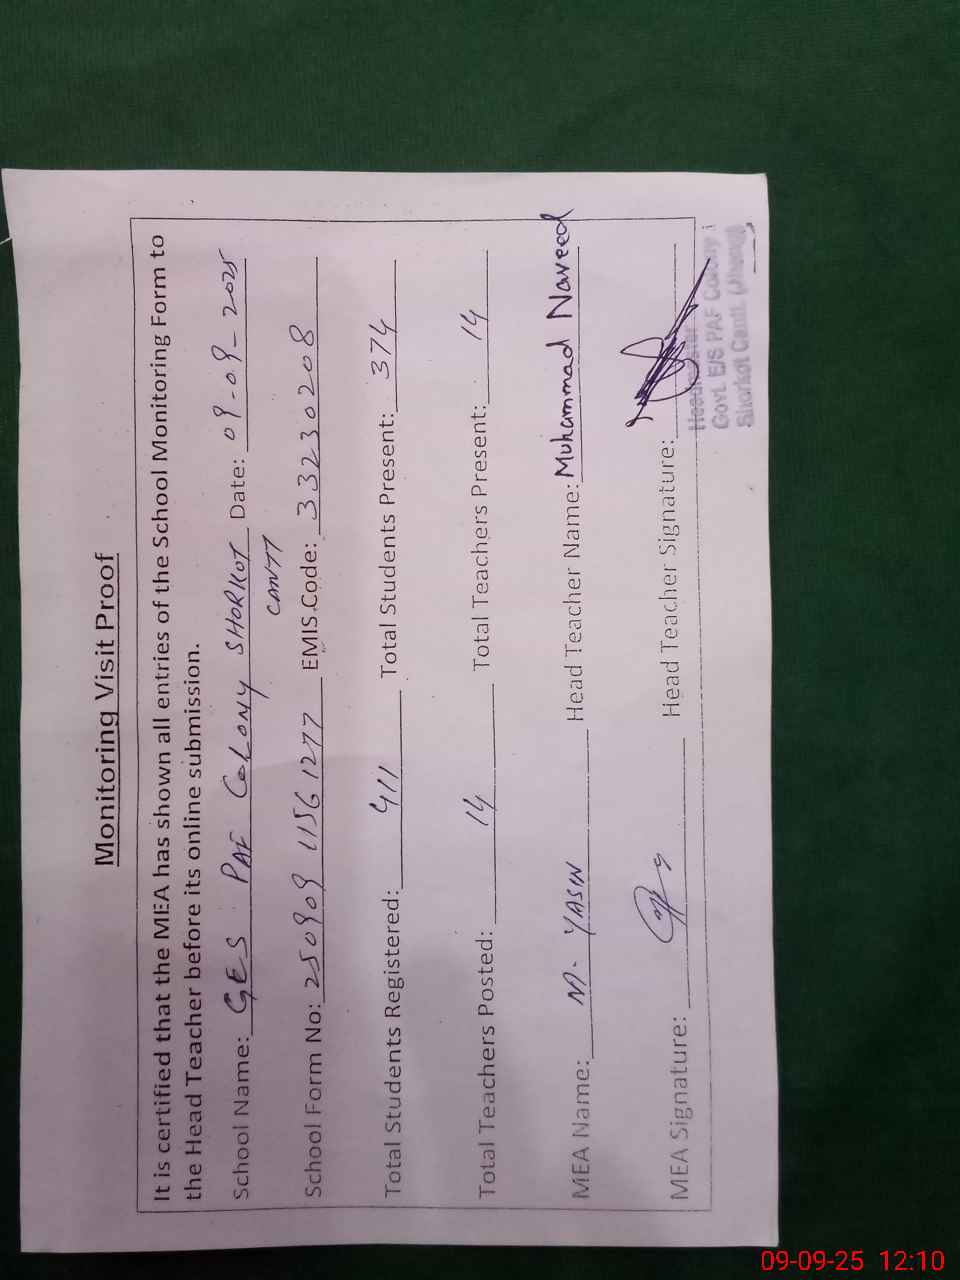 Monitoring Visit Proof
It is certified that the MEA has shown all entries of the School Monitoring Form to
the Head Teacher before its online submission.
School Name: GES PAF COLONY SHORKOT Date: 09-09-2025
CANTT
School Form No: 250909 11561277 EMIS Code: 33230208
Total Students Registered: 411 Total Students Present: 374
Total Teachers Posted: 14 Total Teachers Present: 14
MEA Name: M. YASIN Head Teacher Name: Muhammad Naveed
MEA Signature: Head Teacher Signature:
Headmaster
Govt. E/S PAF Colony
Shorkot Cantt. (Jhang)
09-09-25 12:10